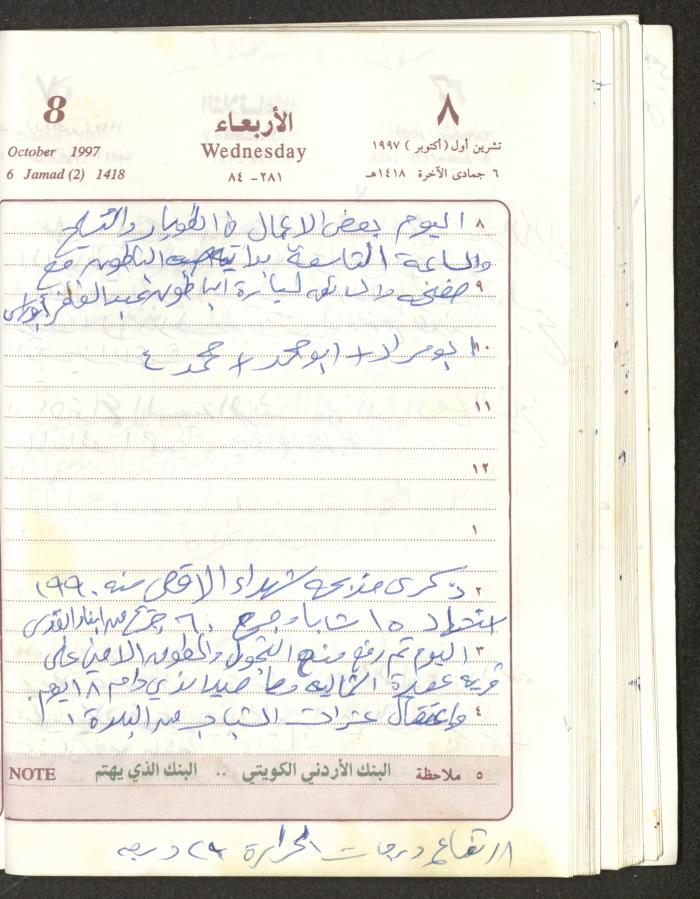 8
October 1997
6 Jamad (2) 1418
الأربعاء
Wednesday
٢٨١ - ٨٤
٨
تشرين أول (أكتوبر) ١٩٩٧
٦ جمادى الآخرة ١٤١٨هـ
٨ اليوم بعض الاعمال
والساعة التاسعة بداية الباطون مع
٩ لسيارة الباطون عبد الفلفز
١٠ ابو مراد + ابو محمد + محمد ع
١١
١٢
١
٢ ذكرى مذبحة شهداء الاقصى سنه ١٩٩٠
استشهاد ١٥ شابا وجرح ٦٠ من ابناء القدس
٣ اليوم تم رفع منع التجول والطوق الامني على
قرية عصيرة الشمالية الذي دام ١٨ يوم
٤ واعتقال عشرات الشباب من البلدة
NOTE
٥ ملاحظة
البنك الأردني الكويتي .. البنك الذي يهتم
ارتفاع درجات الحرارة ٢٩ درجه